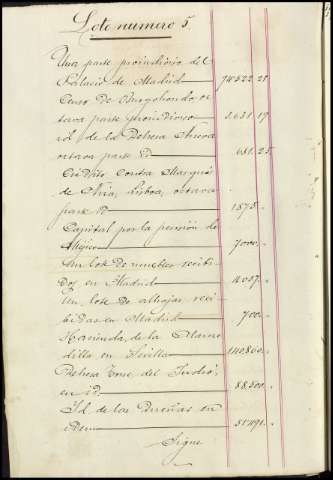 Lote numero 5.
Una parte proindiviso del
Palacio de Madrid 74522 28
Censo de Burgohondo oc-
tava parte proindiviso 3.631 19
id. de la Dehesa
octava parte Yd 681 25
Credito contra Marqués
de Lisboa, octava
parte Yd 1875
Capital por la pension de
Mejico 7000
Un lote de muebles recibi-
dos en Madrid
Un lote de alhajas reci-
bidas en Madrid 700
Hacienda de la Alame-
dilla en Sevilla 140.860
Dehesa Torre del
en id 88.500
Id de las Dueñas en
idem
Sigue